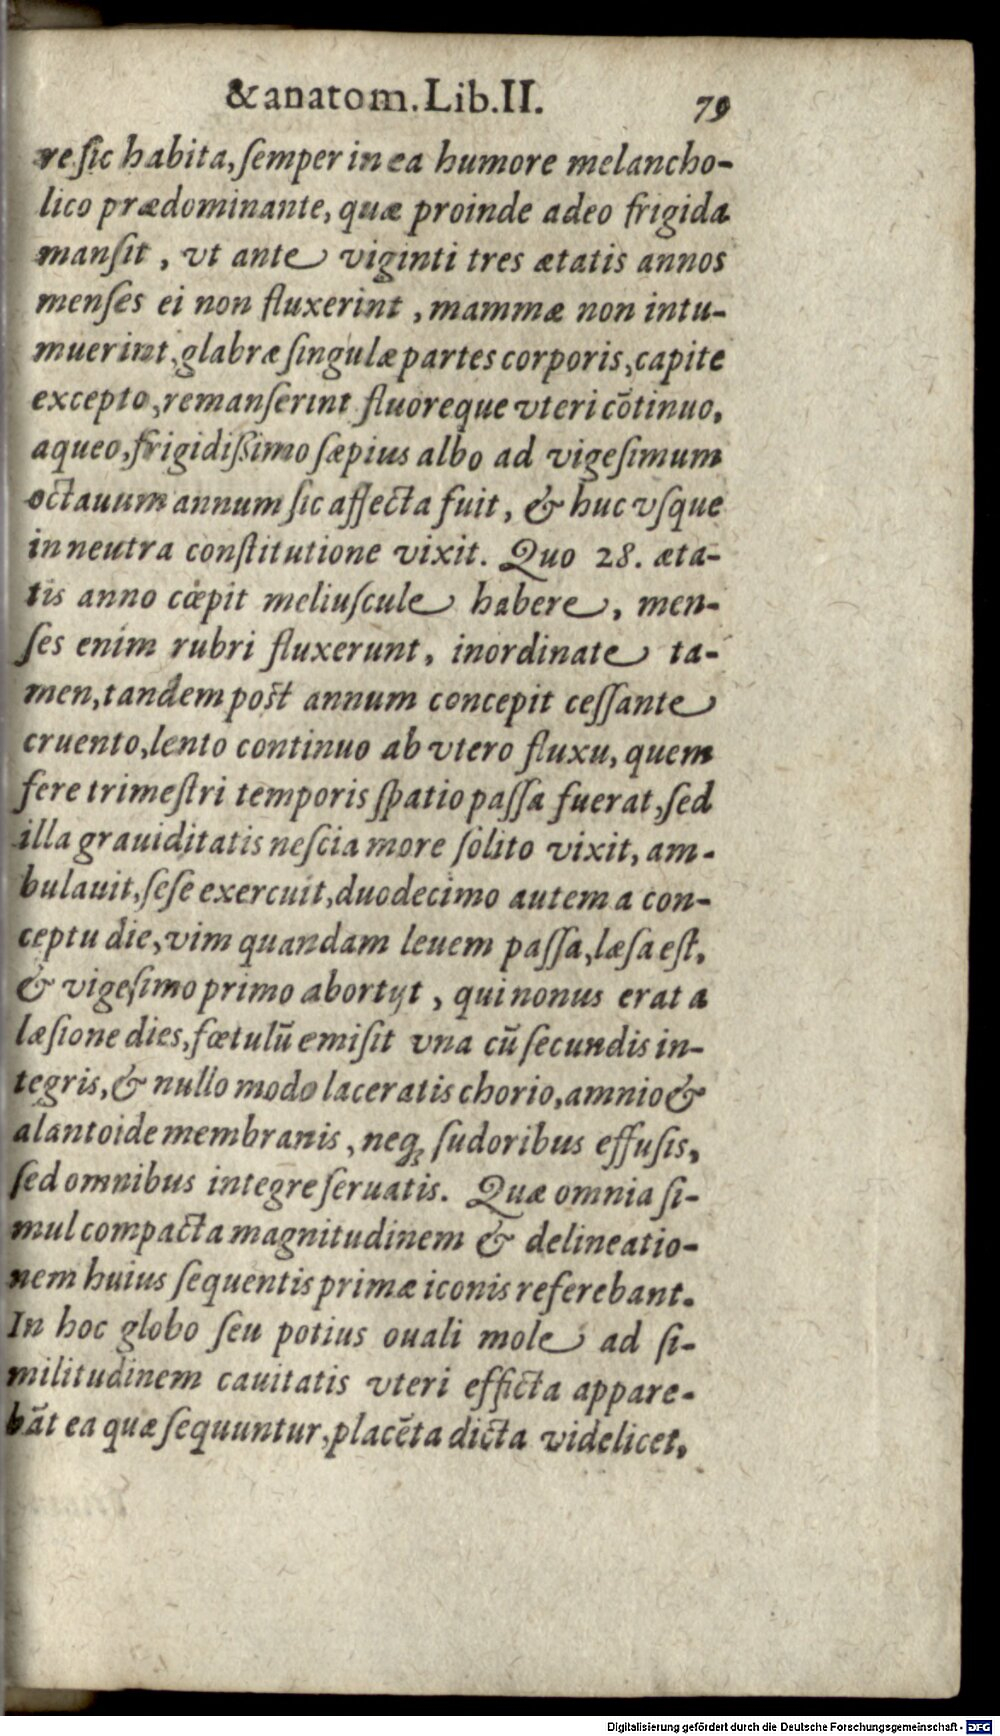 & anatom. Lib. II. 79
re sic habita, semper in ea humore melancho-
lico prædominante, quæ proinde adeo frigida
mansit, vt ante viginti tres ætatis annos
menses ei non fluxerint, mammæ non intu-
muerint, glabræ singulæ partes corporis, capite
excepto, remanserint fluoreque vteri cōtinuo,
aqueo, frigidißimo sæpius albo ad vigesimum
octauum annum sic affecta fuit, & huc vsque
in neutra constitutione vixit. Quo 28. æta-
tis anno cœpit meliuscule habere, men-
ses enim rubri fluxerunt, inordinate ta-
men, tandem post annum concepit cessante
cruento, lento continuo ab vtero fluxu, quem
fere trimestri temporis spatio passa fuerat, sed
illa grauiditatis nescia more solito vixit, am-
bulauit, sese exercuit, duodecimo autem a con-
ceptu die, vim quandam leuem passa, læsa est,
& vigesimo primo abortyt, qui nonus erat a
læsione dies, fœtulū emisit vna cū secundis in-
tegris, & nullo modo laceratis chorio, amnio &
alantoide membranis, neq; sudoribus effusis,
sed omnibus integre seruatis. Quæ omnia si-
mul compacta magnitudinem & delineatio-
nem huius sequentis primæ iconis referebant.
In hoc globo seu potius ouali mole ad si-
militudinem cauitatis vteri efficta appare-
bāt ea quæ sequuntur, placēta dicta videlicet,
Digitalisierung gefördert durch die Deutsche Forschungsgemeinschaft - DFG